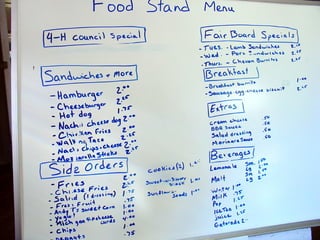 Food Stand Menu
4-H Council Special
Sandwiches + More
- Hamburger 2.00
- Cheeseburger 2.25
- Hot dog 1.75
- Nacho cheese dog 2.00
- Chicken Fries 2.00
- Walking Taco 2.50
- Nachos Chips+cheese 2.00
- Mozzarella Sticks
Side Orders
- Fries 2.00
- Cheese Fries
- Salad (1 dressing) 1.75
- Fresh Fruit
- Sweet Corn
- Chips
Cookies (2) 1.00
Sunflower Seeds 1.00
Fair Board Specials
- Tues. - Lamb Sandwiches
- Wed. - Pork Sandwiches
- Thurs. - Chevon Burritos
Breakfast
- Breakfast burrito
- Sausage egg cheese biscuit
Extras
Cream cheese .50
BBQ Sauce
Salad dressing .50
Marinara Sauce .50
Beverages
- Lemonade
- Malt
- Water 1.00
- Milk .75
- Pop 1.25
- Ice Tea
- Juice 1.25
- Gatorade